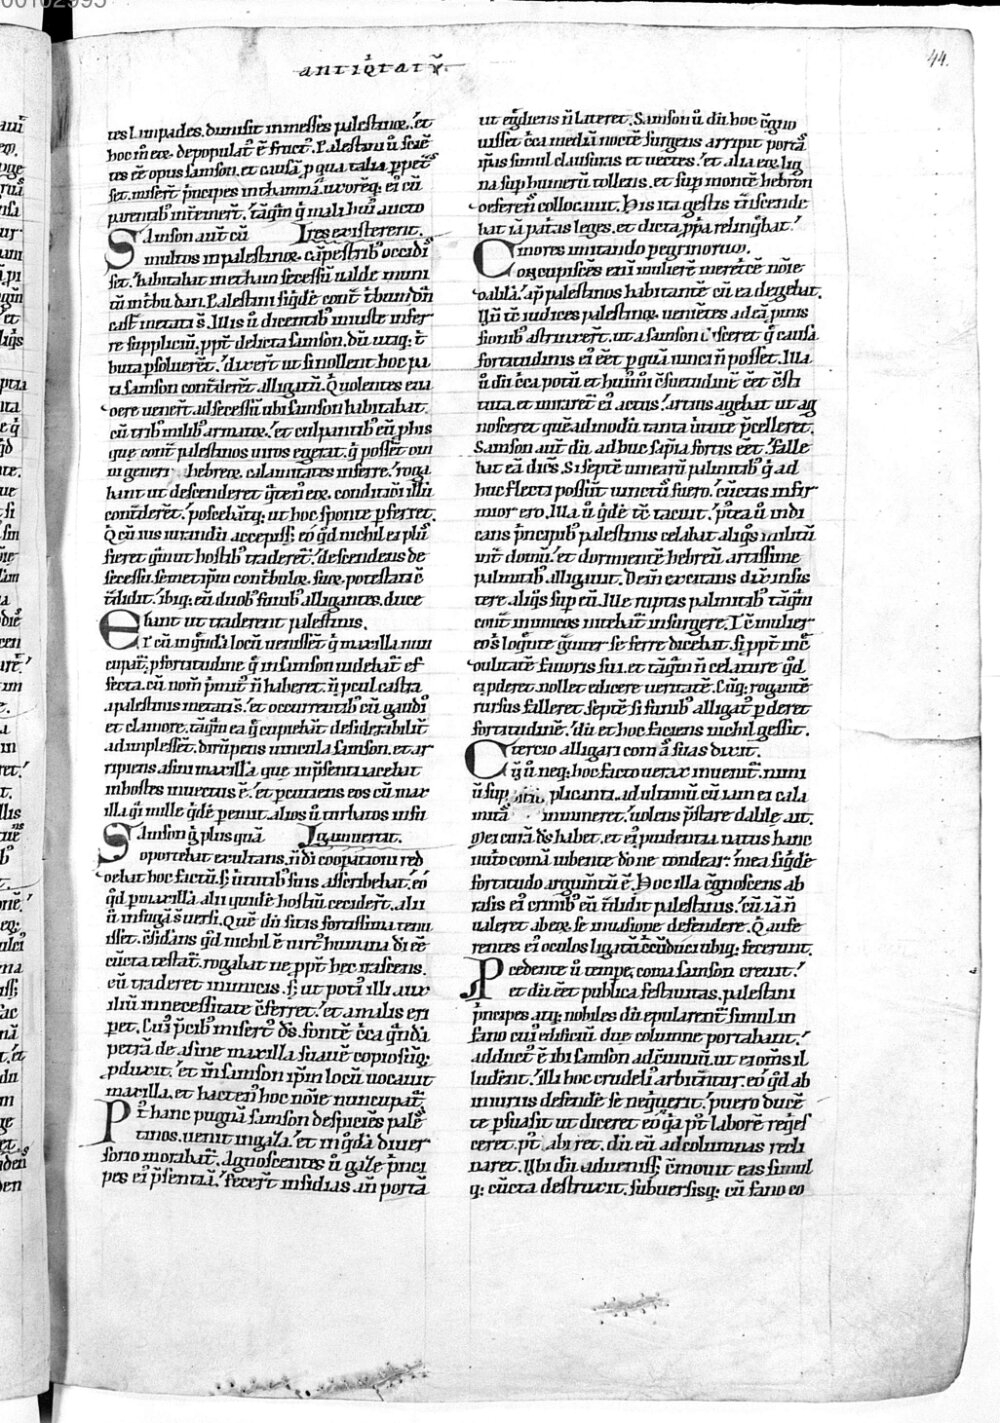 antiq̇tatū.
44.
tes lampades. dimisit in messes palestinoꝝ. et
hoc in eoꝝ depopulat᷒ ē fruct᷒. Palestini ū sciē
tes eē opus samson. et causā ꝓ qua talia ꝑpet͛
set. miser̄t p̄ncipes in thamnā. uxorēq; ei᷒ cū
parentib᷒ intemer̄t. tāq̄m q̄ mali hui᷒ aucto
res existerent.
Samson aut̄ cū
multos in palestinoꝝ cāpestrib᷒ occidi͛
set. habitabat in ethan secessū ualde muni
tū in tribu dan. Palestini siq̄dē cont̄ tribum
cast̄ metati s̄. Illis ū dicentib᷒ iniuste infer
re suppliciū. ꝓpt̄ delicta samson. dū utiq; t̄
buta ꝑsoluerēt. dixer̄t ut si nollent hoc pa
ti samson cont̄derēt alligatū. Q̇ uolentes eua
dere uener̄t ad secessū ubi samson habitabat.
cū trib᷒ milib᷒ armatoꝝ. et culpantib᷒ eū plus
que cont̄ palestinos uiros egerat. q̇ possēt om
ni generi hebreoꝝ calamitates inferre. roga
bant ut descenderet q̄ten᷒ eoꝝ conditioni illū
cont̄derēt. poscebātq; ut hoc sponte ꝑferret.
Q̇ cū ius iurandū accepiss; eo q̇d nichil ei plus
fieret q̄m ut hostib᷒ traderet̄. descendens de
secessu semetip̄m contribuloꝝ suoꝝ potestati
t̄didit. ibiq; eū duob᷒ funib᷒ alligantes. duce
bant ut traderent palestinis.
Et cū in quēdā locū uenissēt q̄ maxilla nun
cupat̄. ꝓ fortitudine q̄ in samson uidebat̄ ef
fecta. cū nom̄ p̄mit᷒ n̄ haberet. n̄ ꝓcul castra
a palestinis metata s̄. et occurrentib᷒ cū gaudio
et clamore. tāq̄m ea q̄ cupiebāt desiderabilit̄
adimplessēt. dirūpens uincula samson. et ar
ripiens asini maxillā que in p̄senti iacebat
in hostes inuectus ē. et percutiens eos cū max
illa q̇si mille q̇dē ꝑemit. alios ū turbatos in fu
gam uertit.
Samson q̄ plus quā
oportebat exultans. n̄ di coopationi red
debat hoc factū. s; uirtutib᷒ suis asscribebat. eo
q̇d ꝓ maxillā alii quidē hostiū cecidert̄. alii
ū in fugā s̄ uersi. Quē dū sitis fortissima tenu
isset. c̄sidans q̇d nichil ē uirt᷒ humana di eē
cūcta testat̄. rogabat ne ꝓpt̄ hec irascens.
eū traderet inimicis. s; ut poti᷒ illi aux
iliū in necessitate c̄ferret. et a malis eri
pet. Cui᷒ p̄cib᷒ misert᷒ ds̄. fontē c̄ca q̄ndā
petrā de asine maxilla suauē copiosūq;
ꝓduxit. et in̄ samson ip̄m locū uocauit
maxilla. et hacten᷒ hoc noīe nuncupat̄.
Post hanc pugnā samson despiciēs pale͛
tinos. uenit in gaza. et in q̄dā diuer
sorio morabat̄. Agnoscentes ū gaze p̄nci
pes ei᷒ p̄sentiā. fecer̄t insidias. an̄ portā
ut egrediens n̄ lateret. Samson ū dū hoc c̄gno
uisset c̄ca mediā noctē surgens arripit portā
ip̄is simul clausuras et uectes. et alia eoꝝ lig
na suꝑ humerū tollens. et suꝑ montē hebron
deferens collocauit. His ita gestis t̄nscende
bat iā pat̄as leges. et dicta ꝓp̄a relinq̇bat.
mores imitando peregrinorum.
Concupiscēs enī mulierē meret̄cē noīe
dalila. ap̄ palestinos habitantē cū ea degebat.
Unde iudices palestinoꝝ. uenietes ad eā ꝓmis
sionib᷒ astrinxer̄t. ut a samson disceret q̄ causa
fortitudinis ei᷒ eēt ꝓ quā uinci n̄ posset. Illa
ū dū c̄ca potū et hui᷒modi c̄suetudinē eēt c̄sti
tuta. et miraret̄ ei᷒ actus. artius agebat ut ag
nosceret quēadmodū tanta uirtute p̄celleret.
Samson aut̄ dū adhuc sapīa fortis eēt. falle
bat eā dicēs. Si septē uinearū palmitib᷒ q̄ ad
huc flecti possūt uinctus fuero. cūctis infir
mior ero. Illa ū q̇dē tē tacuit. p̄tea ū indi
cans p̄ncipib᷒ palestinis celabat aliq̇s militū
int̄ domū. et dormientē hebreū artissime
palmitib᷒ alligauit. Dein̄ excitans dixit insis
tere aliq̇s suꝑ eū. Ille ruptis palmitib᷒ tāq̄m
cont̄ inimicos nitebat̄ insurgere. Et mulier
eo s̄ loq̄nte grauiter se ferre dicebat. si ꝓpt̄ inc̄
dulitatē fauoris sui. et tāq̄m n̄ celature q̇d
ei ꝓderet. nollet edicere ueritatē. Cūq; rogantē
rursus falleret septē si funib᷒ alligat᷒ ꝑderet
fortitudinē. dū et hoc faciens nichil gessit.
tercio alligari comā suas dixit.
Cū ū neq; hoc facto uerax inuenit̄. nimi
ū sup plicanti. ad ultimū cū iam ei cala
mitā immineret. uolens p̄stare dalile ait.
Mei curā ds̄ habet. et ei᷒ prudentia natus hanc
nutro comā iubente dn̄o ne tondear. mea siq̄dē
fortitudo argum̄tū ē. Hoc illa c̄gnoscens ab
rasis ei᷒ crinib᷒ eū t̄didit palestinis. cū iā n̄
ualeret ab eoꝝ se inuasione defendere. Q̇ aufe
rentes ei᷒ oculos ligatū c̄cūduci ubiq; fecerunt.
Precedente ū tempe, coma samson creuit.
et dū eēt publica festiuitas. palestini
p̄ncipes atq; nobiles dū epularent̄ simul in
fano cui᷒ edificiū due columne portabant.
adduct᷒ ē ibi samson ad conuiuiū. ut ei om̄s il
luderēt. Illi hoc crudeli᷒ arbitrāntur. eo q̇d ab
iniuriis defendē se neq̄uerit. puero ducē
te ꝑsuasit ut diceret eo q̇a pt̄ laborē reqͥes
ceret. pt̄ abi ret. dū eū ad columnas recli
naret. Ubi dū aduenisset c̄mouit eas simul
q; cūcta destruxit. subuersisq; cū fano eo